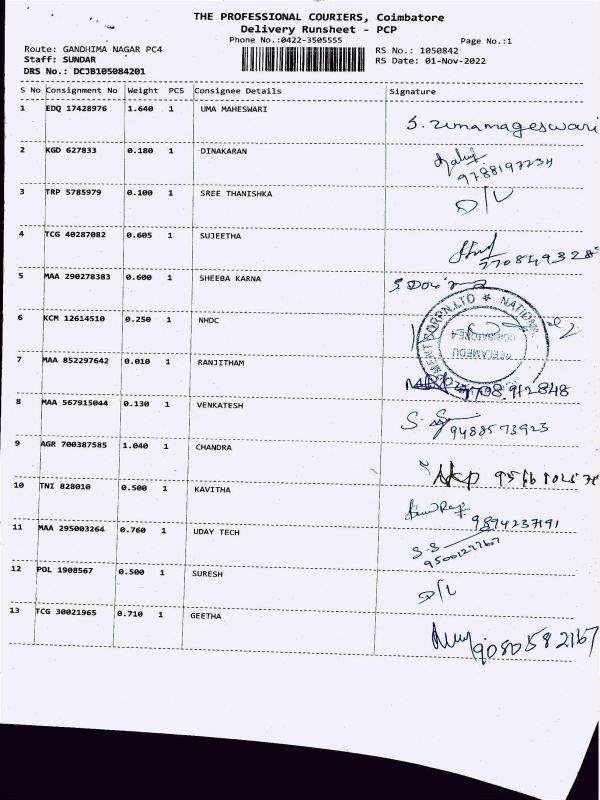 THE PROFESSIONAL COURIERS, Coimbatore
Delivery Runsheet - PCP
Phone No.:0422-3505555
Page No.:1
Route: GANDHIMA NAGAR PC4
RS No.: 1050842
Staff: SUNDAR
RS Date: 01-Nov-2022
DRS No.: DCJB105084201
S No Consignment No Weight PCS Consignee Details Signature
1 EDQ 17428976 1.640 1 UMA MAHESWARI
S. Umamageswari
2 KGD 627833 0.180 1 DINAKARAN
9788197234
3 TRP 5785979 0.100 1 SREE THANISHKA
D/L
4 TCG 40287082 0.605 1 SUJEETHA
7708493285
5 MAA 290278383 0.600 1 SHEEBA KARNA
6 KCM 12614510 0.250 1 NHDC
NATIONAL
CORRN. LTD
PEELAMEDU
COIMBATORE-4
7 MAA 852297642 0.010 1 RANJITHAM
7708912848
8 MAA 567915044 0.130 1 VENKATESH
9488573923
9 AGR 700387585 1.040 1 CHANDRA
10 TNI 828010 0.500 1 KAVITHA
9894237191
11 MAA 295003264 0.760 1 UDAY TECH
S.S
9500127767
12 POL 1908567 0.500 1 SURESH
D/L
13 TCG 30021965 0.710 1 GEETHA
9080582167